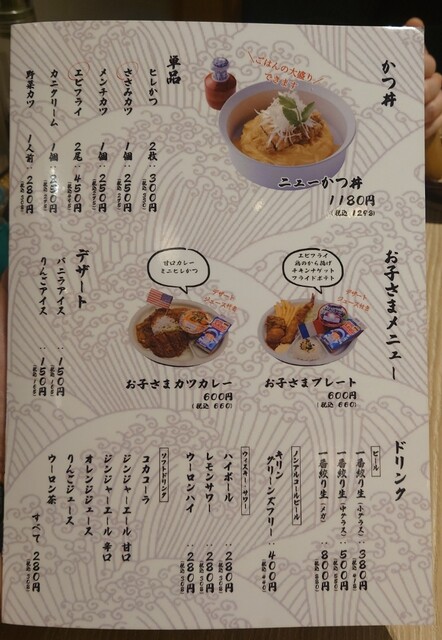 かつ丼
ごはんの大盛り
できます
ニューかつ丼
1180円
(税込 1298)
単品
ヒレかつ 2枚‥300円
ささみカツ 1個‥250円
メンチカツ 1個‥250円
エビフライ 2尾‥450円
カニクリーム 1個‥250円
野菜カツ 1人前‥280円
お子さまメニュー
エビフライ
鶏のから揚げ
チキンナゲット
フライドポテト
デザート
ジュース付き
お子さまプレート
600円
(税込 660)
甘口カレー
ミニヒレかつ
デザート
ジュース付き
お子さまカツカレー
600円
(税込 660)
デザート
バニラアイス‥150円
りんごアイス‥150円
ドリンク
ビール
一番絞り生(小グラス)‥380円
一番絞り生(中グラス)‥500円
一番絞り生(メガ)‥800円
ノンアルコールビール
キリン
グリーンズフリー‥400円
ウィスキー・サワー
ハイボール‥280円
レモンサワー‥280円
ウーロンハイ‥280円
ソフトドリンク
コカコーラ
ジンジャーエール 甘口
ジンジャーエール 辛口
オレンジジュース
りんごジュース
ウーロン茶
すべて 280円